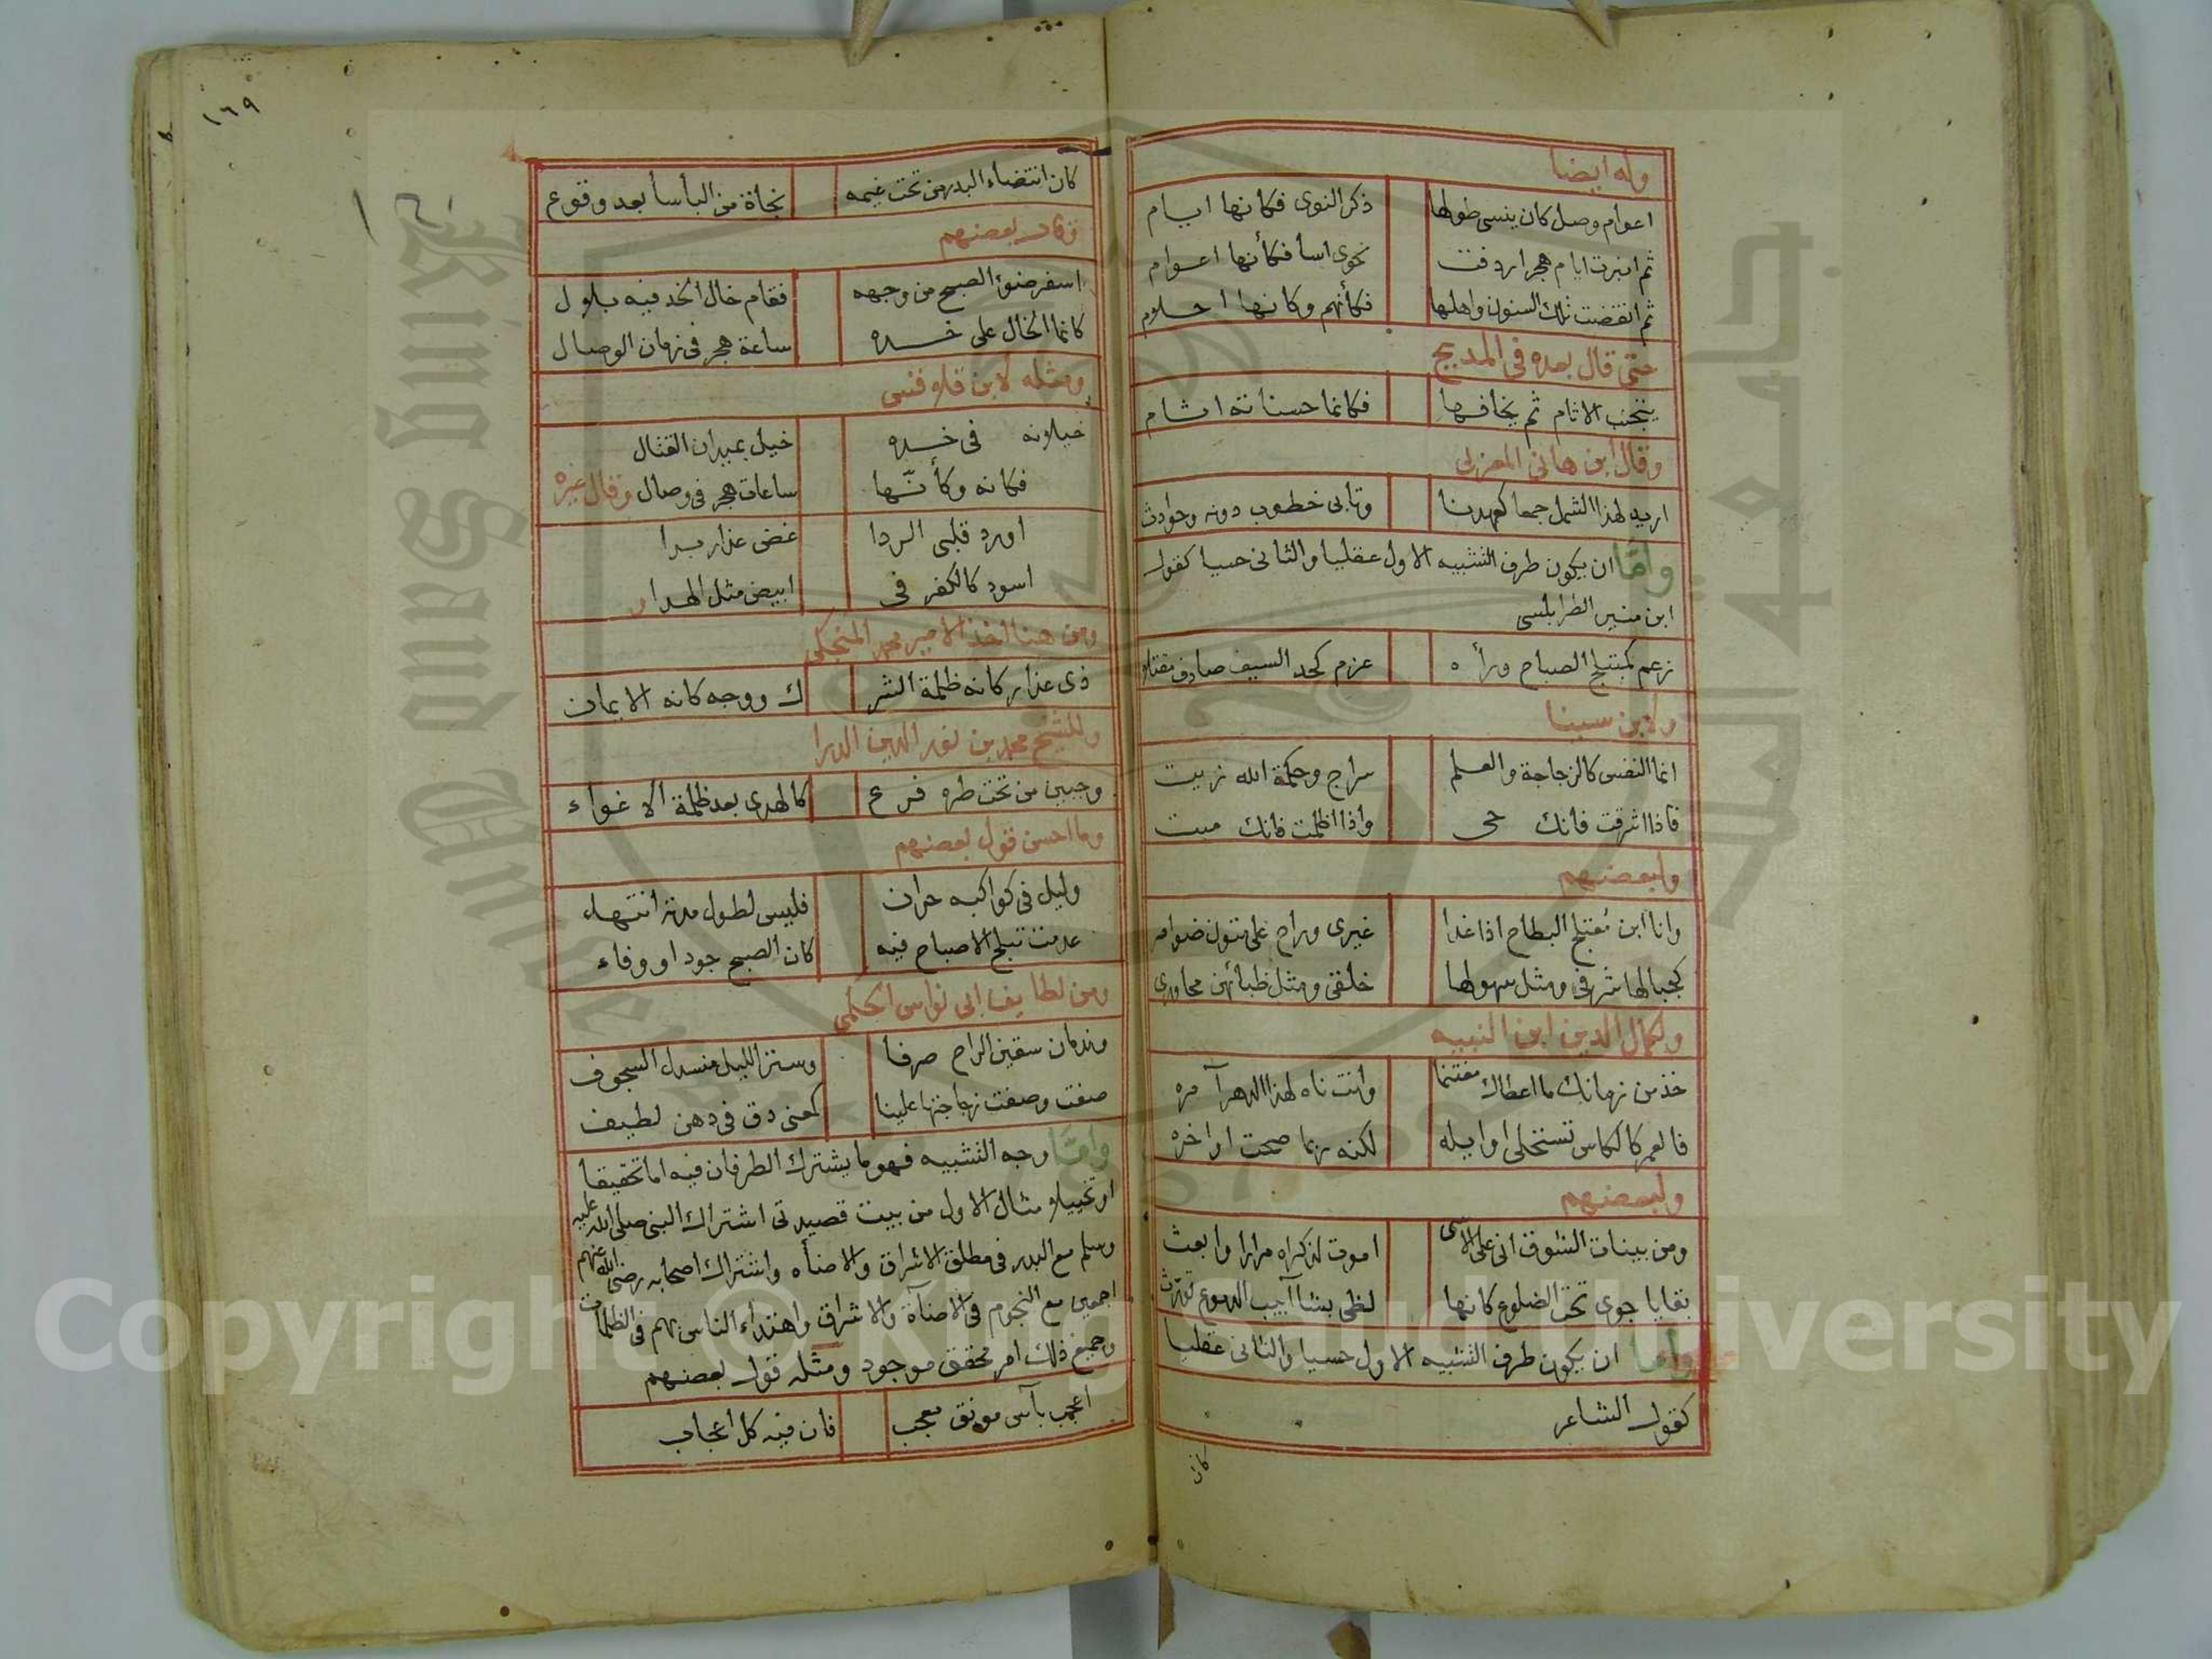 وله ايضا
اعوام وصل كان ينسى طولها ذكر النوى فكانها ايام
ثم انبرت ايام هجر اردفت نحوى اسا فكأنها اعوام
ثم انقضت تلك السنون واهلها فكأنهم وكانها احلام
حتى قال بعده فى المديح
يتجنب الاثام ثم يخافها فكانما حسناته اثام
وقال ابن هانى المغربى
اريد لهذا الشمل جمعا كعهدنا وتابى خطوب دونه وحوادث
واما ان يكون طرف التشبيه الاول عقليا والثانى حسيا كقول
ابن منير الطرابلسى
زعم كمنبلج الصباح ورأه عزم كحد السيف صادف مقتلا
ولابن سينا
انما النفس كالزجاجة والعلم سراج وحكمة الله زيت
فاذا اشرقت فانك حى واذا اظلمت فانك ميت
ولبعضهم
وانا ابن معتلج البطاح اذا غدا غيرى وراح على متون ضوامر
كجبالها شرفى ومثل سهولها خلقى ومثل ظبائهن محاورى
ولكمال الدين ابن النبيه
خذ من زمانك ما اعطاك مغتنما وانت ناه لهذا الدهر آمره
فالعمر كالكاس تستحلى اوايله لكنه ربما صحت اواخره
ولبعضهم
ومن بينات الشوق انى على الاسى اموت لذكراه مرارا وابعث
بقايا جوى تحت الضلوع كانها لظى بشاآبيب الدموع تورث
واما ان يكون طرف التشبيه الاول حسيا والثانى عقليا
كقول الشاعر
كان
١٦٩
كان انتضاء البدر من تحت غيمه نجاة من البأسا بعد وقوع
وقال بعضهم
اسفر ضوء الصبح من وجهه فقام خال الخد فيه بلال
كانما الخال على خده ساعة هجر فى زمان الوصال
ومثله لابن قلاقنس
خيلانه فى خده خيل بميدان القتال
فكانه وكأنّها ساعات هجر فى وصال وقال غيره
اورد قلبى الردا غض عذار بدا
اسود كالكفر فى ابيض مثل الهدا
ومن هنا اخذ الامير محمد المنجكى
ذى عذار كانه ظلمة الشر ك ووجه كانه الايمان
وللشيخ محمد بن نور الدين الدرا
وجبين من تحت طره فرع كالهدى بعد ظلمة الاغواء
وما احسن قول بعضهم
وليل فى كواكبه حران فليس لطول مدته انتهاء
عدمت تبلج الاصباح فيه كان الصبح جود او وفاء
ومن لطايف ابى نواس الحكمى
وندمان سقين الراح صرفا وستر الليل منسدل السجوف
صفت وصفت زجاجتها علينا كمعنى دق فى ذهن لطيف
واما وجه التشبيه فهو ما يشترك الطرفان فيه اما تحقيقا
او تخييلا مثال الاول من بيت قصيدتى اشتراك النبى صلى الله عليه
وسلم مع البدر فى مطلق الاشراق والاضأه واشتراك اصحابه رضى الله عنهم
اجمعين مع النجوم فى الاضآة والاشراق واهتداء الناس بهم فى الظلمات
وجميع ذلك امر محقق موجود ومثله قول بعضهم
اعجب بآس مونق معجب فان فيه كل اعجاب
Copyright © King Saud University